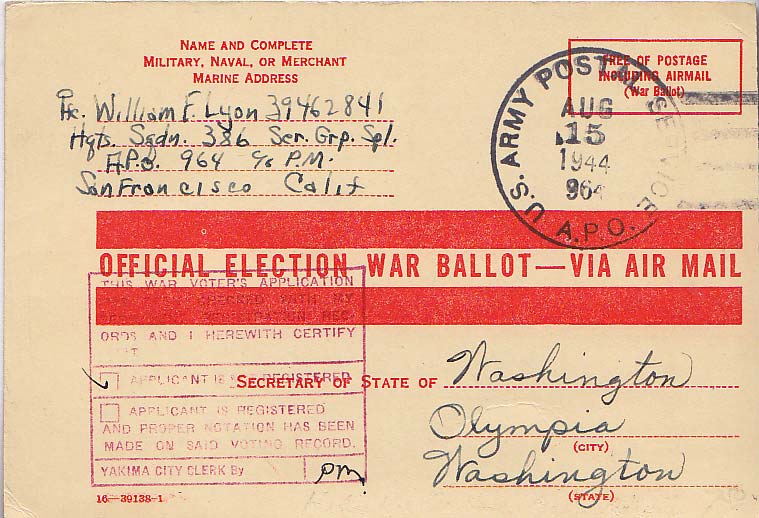 NAME AND COMPLETE
MILITARY, NAVAL, OR MERCHANT
MARINE ADDRESS
Pfc. William F. Lyon 39462841
Hqts. Sqdn. 386 Ser. Grp. Spl.
A.P.O. 964 c/o P.M.
San Francisco Calif
FREE OF POSTAGE
INCLUDING AIRMAIL
(War Ballot)
U.S. ARMY POSTAL SERVICE
AUG
15
1944
964
A.P.O.
OFFICIAL ELECTION WAR BALLOT—VIA AIR MAIL
THIS WAR VOTER'S APPLICATION
WITH MY
ORDS AND I HEREWITH CERTIFY
APPLICANT IS NOT REGISTERED
APPLICANT IS REGISTERED
AND PROPER NOTATION HAS BEEN
MADE ON SAID VOTING RECORD.
YAKIMA CITY CLERK By pm
SECRETARY OF STATE OF Washington
Olympia
(CITY)
Washington
(STATE)
16—39138-1